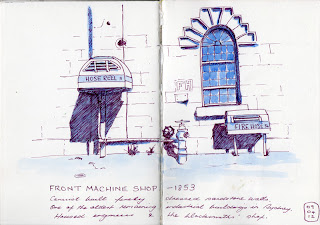 HOSE REEL
FH
FIRE HOSE
FRONT MACHINE SHOP — 1853
Convict built finely dressed sandstone walls
One of the oldest surviving industrial buildings in Sydney
Housed engineers & the blacksmiths' shop.
09
04
12